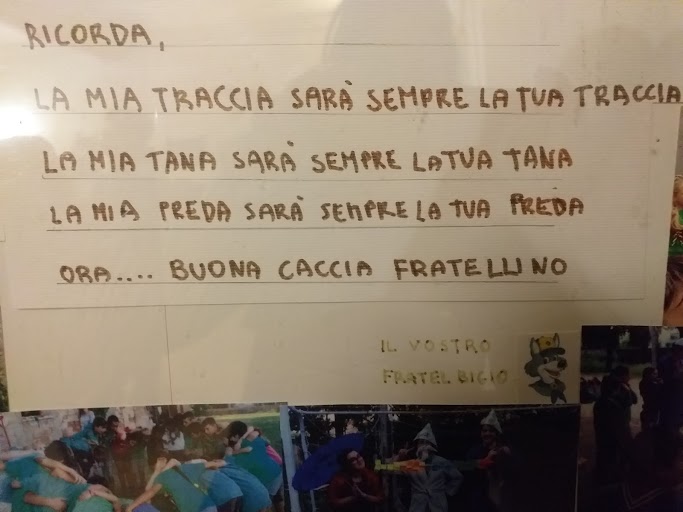 RICORDA,
LA MIA TRACCIA SARÀ SEMPRE LA TUA TRACCIA
LA MIA TANA SARÀ SEMPRE LA TUA TANA
LA MIA PREDA SARÀ SEMPRE LA TUA PREDA
ORA.... BUONA CACCIA FRATELLINO
IL VOSTRO
FRATEL BIGIO